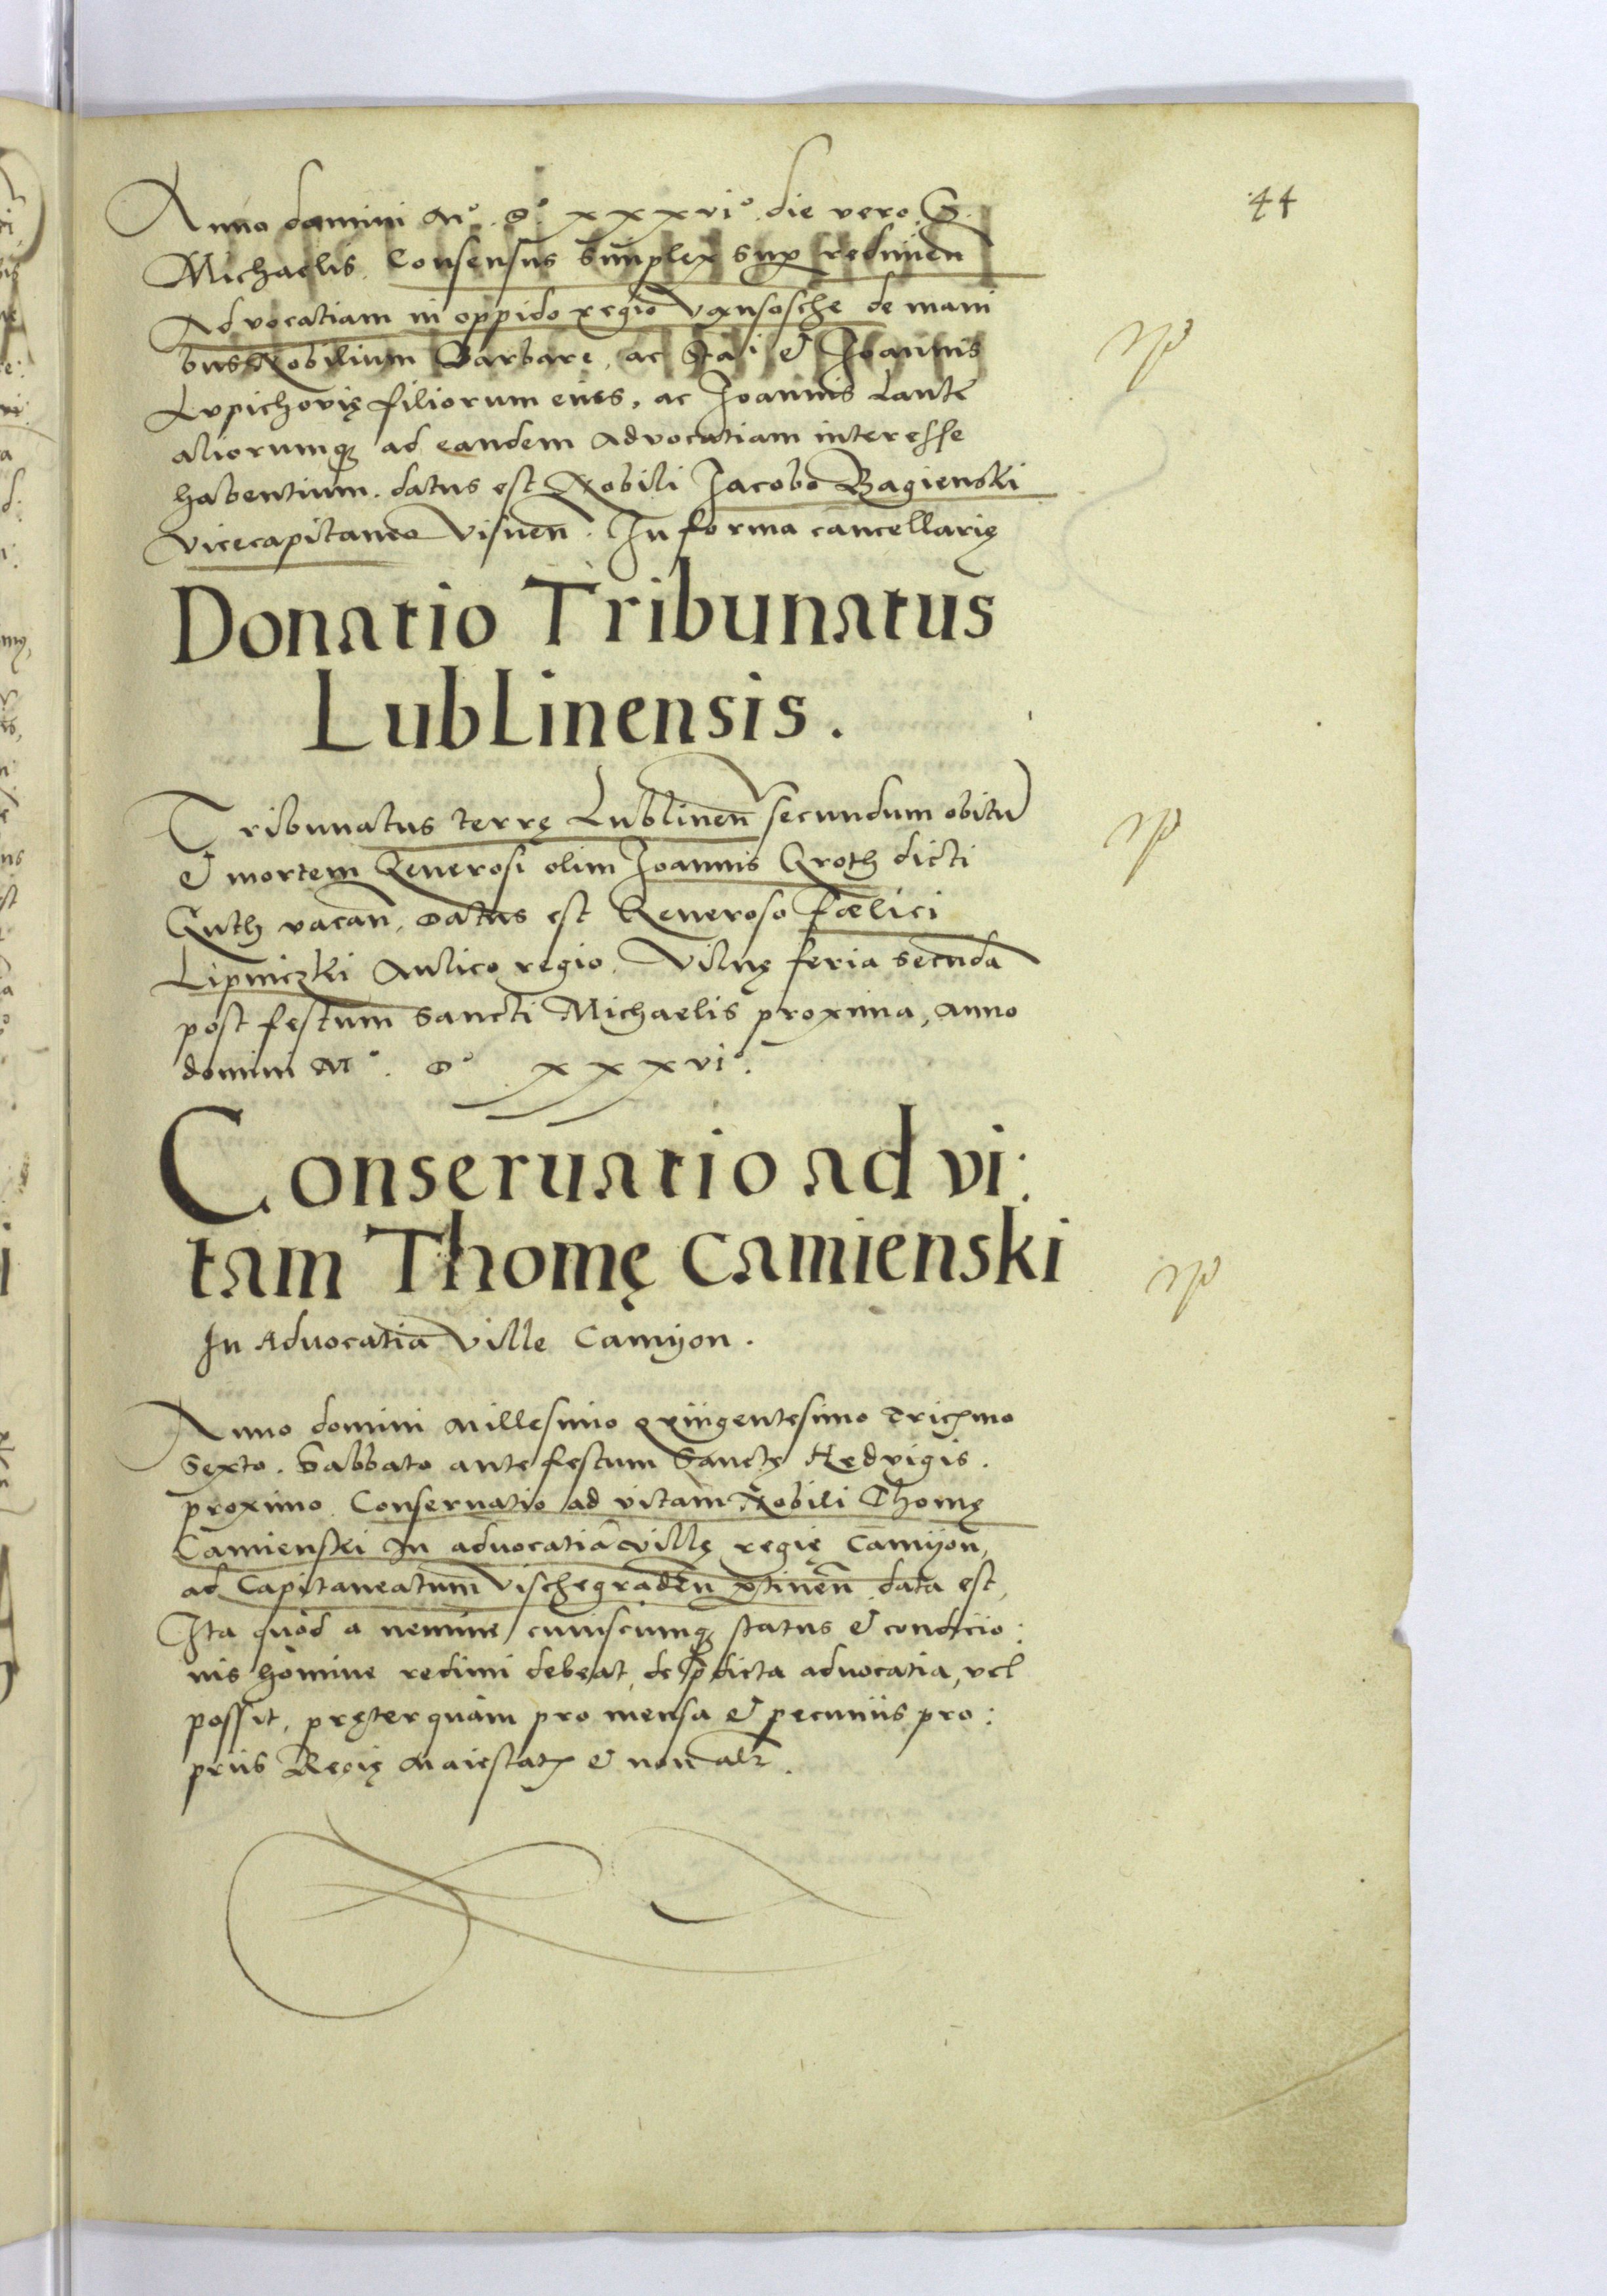 44
Anno domini Mº. Dº. xxxviº. die vero S.
Michaelis. Consensus Simplex sup redimen
Advocatiam in oppido regio Vansosche de mani
bus Nobilium Barbare, ac Joannis
Lupichovię filiorum eius, ac Joannis Lante
aliorumq ad eandem Advocatiam interesse
habentium. datus est Nobili Jacobo Bagienski
vicecapitaneo Visnen. In forma cancellarię
Donatio Tribunatus
Lublinensis.
Tribunatus terrę Lublinen secundum obitu
& mortem Generosi olim Joannis Groth dicti
Guth vacan, Datus est Generoso Fælici
Lipniczki Aulico regio. Vilnę feria secunda
post festum Sancti Michaelis proxima, anno
domini Mº. Dº xxxviº.
Conservatio ad vi:
tam Thomę Camienski
In Advocatia Ville Camyon.
Anno domini Millesimo quingentesimo Tricmo
Sexto. Sabbato ante festum Sanctę Hedvigis.
proximo. Conservatio ad vitam Nobili Thomę
Camienski In advocatia villę regię Camyon,
ad Capitaneatum Vischegraden ptinen data est,
Ita quod a nemine cuiuscumq status & condicio:
nis homine redimi debeat, de pdicta advocatia, vel
possit, pręterquam pro mensa & pecuniis pro:
priis Regię Maiestat & non alr.